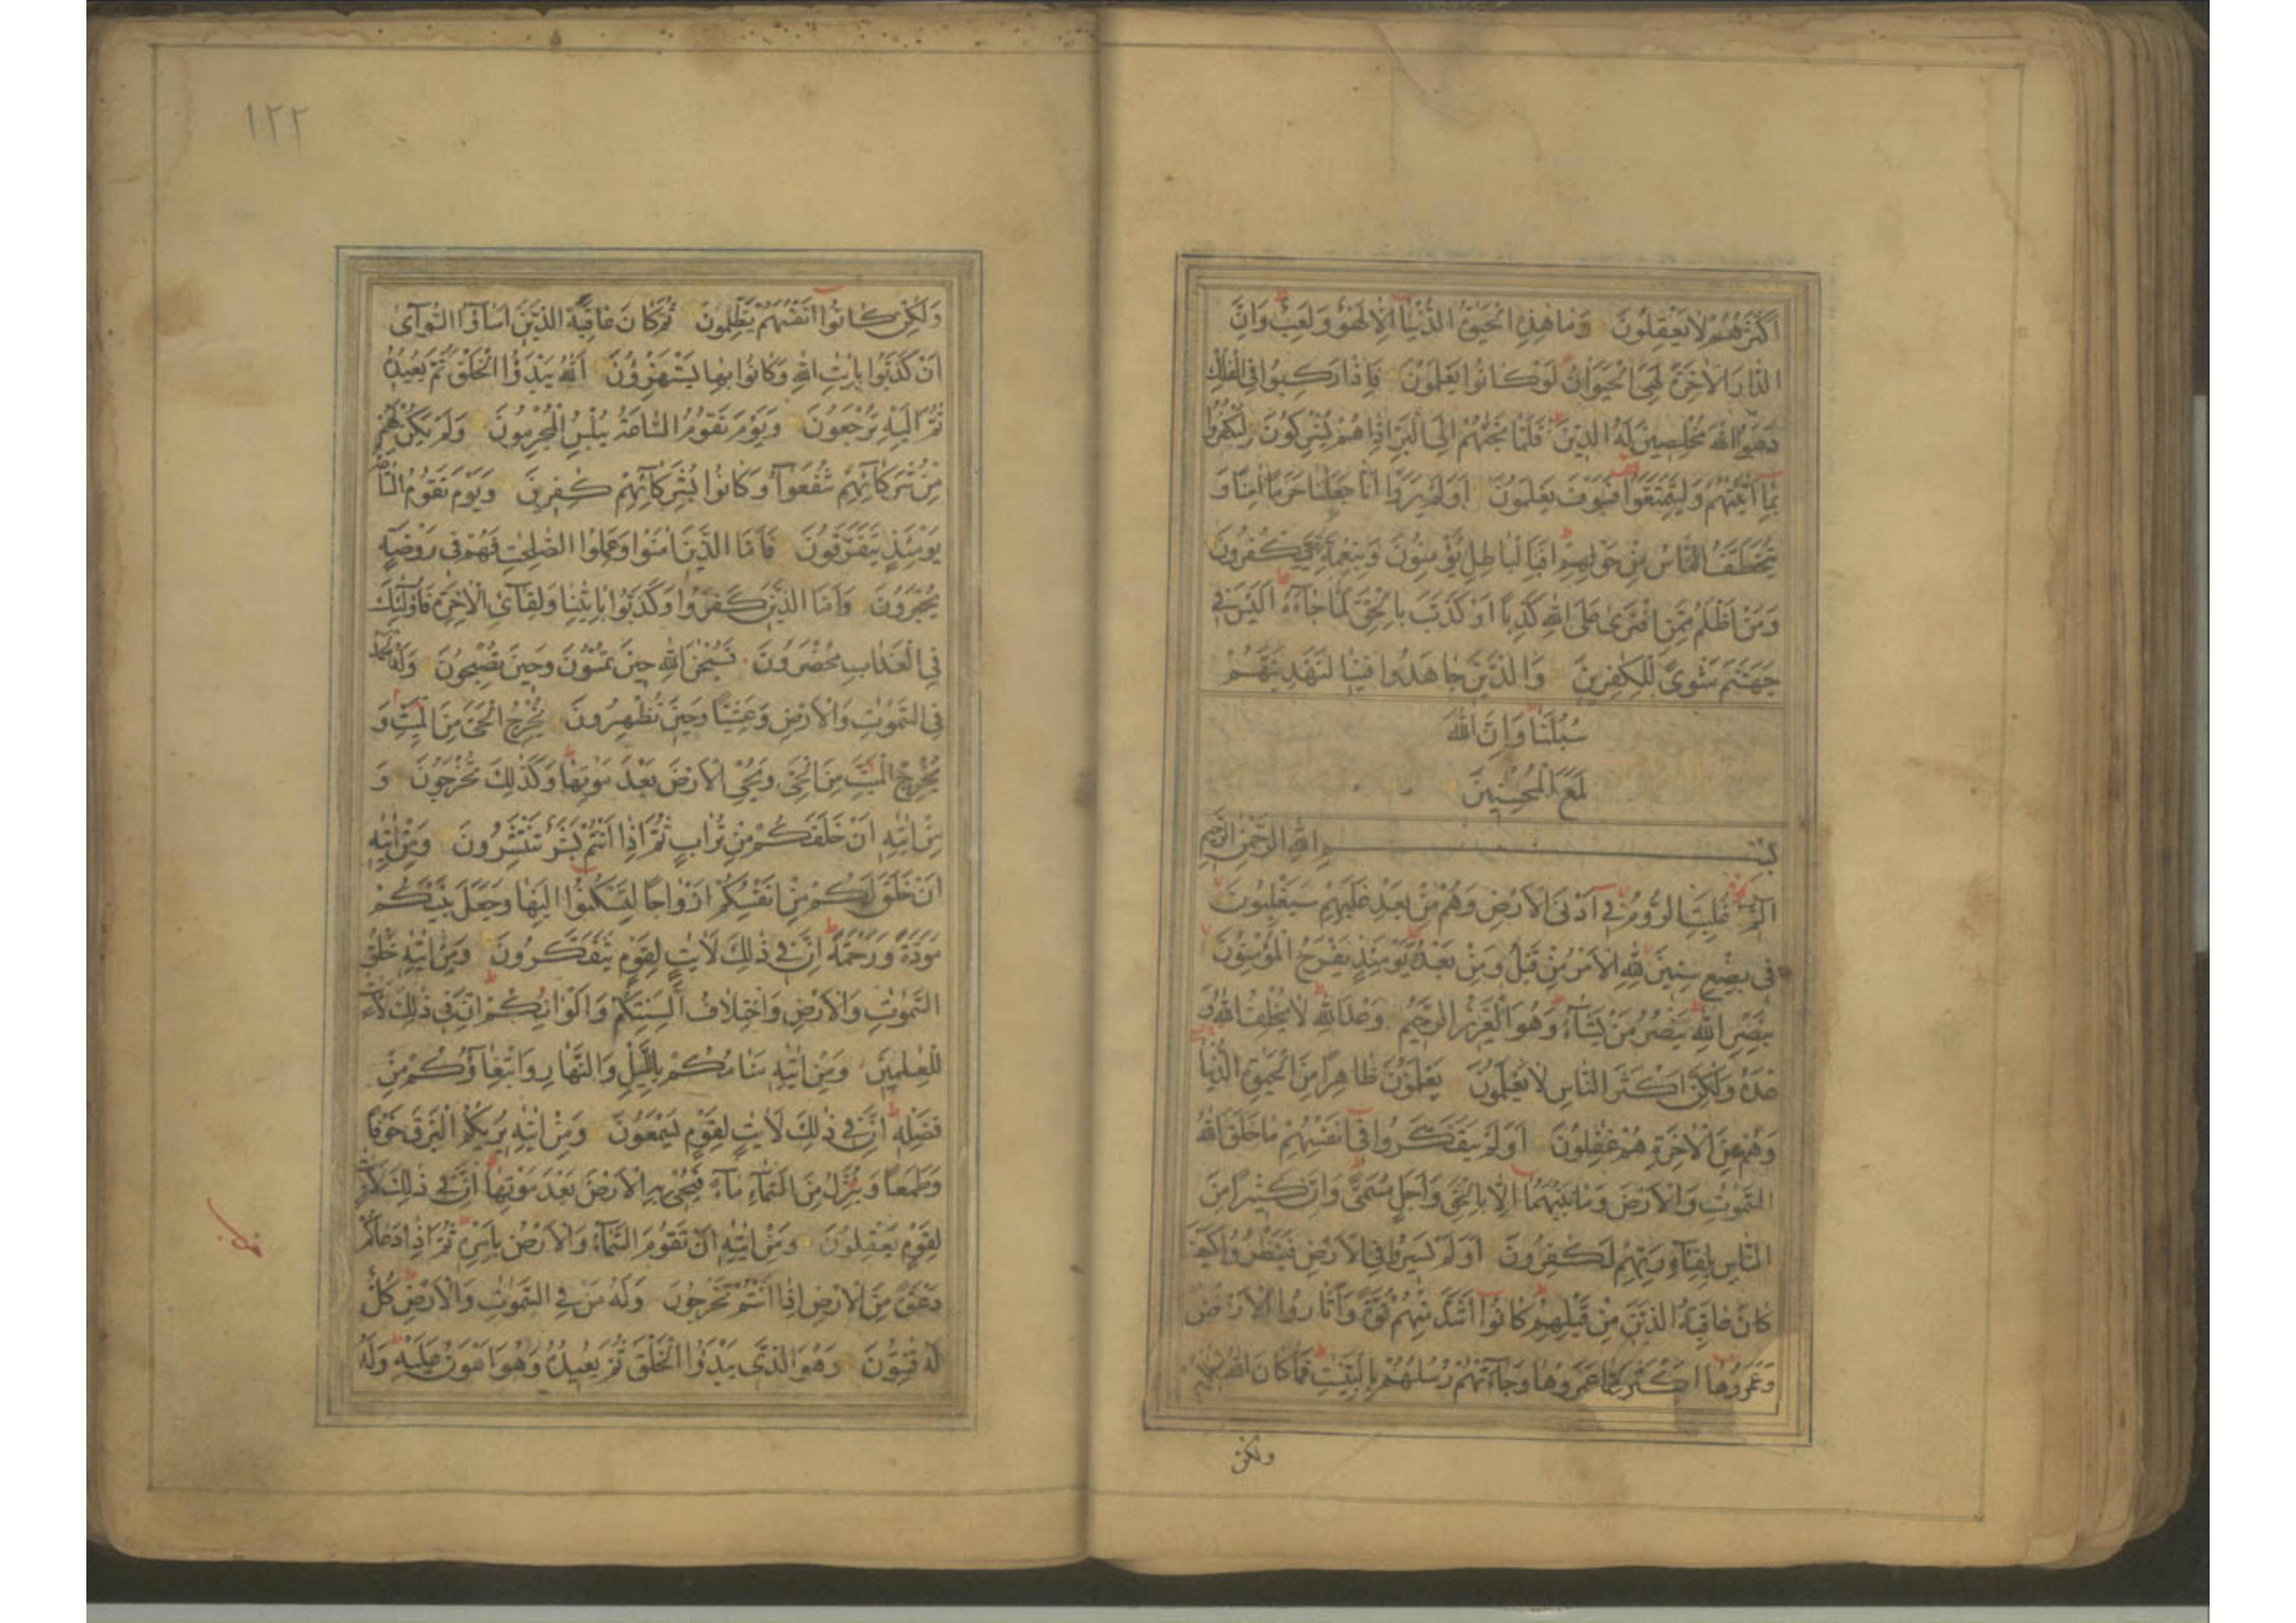 اَكْثَرُهُمْ لَا يَعْقِلُونَ وَمَا هٰذِهِ الْحَيٰوةُ الدُّنْيَا اِلَّا لَهْوٌ وَلَعِبٌ وَاِنَّ
الدَّارَ الْاٰخِرَةَ لَهِىَ الْحَيَوَانُ لَوْ كَانُوا يَعْلَمُونَ فَاِذَا رَكِبُوا فِى الْفُلْكِ
دَعَوُا اللّٰهَ مُخْلِصِينَ لَهُ الدِّينَ فَلَمَّا نَجّٰهُمْ اِلَى الْبَرِّ اِذَا هُمْ يُشْرِكُونَ لِيَكْفُرُوا
بِمَا اٰتَيْنٰهُمْ وَلِيَتَمَتَّعُوا فَسَوْفَ يَعْلَمُونَ اَوَلَمْ يَرَوْا اَنَّا جَعَلْنَا حَرَمًا اٰمِنًا وَ
يُتَخَطَّفُ النَّاسُ مِنْ حَوْلِهِمْ اَفَبِالْبَاطِلِ يُؤْمِنُونَ وَبِنِعْمَةِ اللّٰهِ يَكْفُرُونَ
وَمَنْ اَظْلَمُ مِمَّنِ افْتَرٰى عَلَى اللّٰهِ كَذِبًا اَوْ كَذَّبَ بِالْحَقِّ لَمَّا جَاءَهُ اَلَيْسَ فِى
جَهَنَّمَ مَثْوًى لِلْكٰفِرِينَ وَالَّذِينَ جَاهَدُوا فِينَا لَنَهْدِيَنَّهُمْ
سُبُلَنَا وَاِنَّ اللّٰهَ
لَمَعَ الْمُحْسِنِينَ
بِسْمِ اللّٰهِ الرَّحْمٰنِ الرَّحِيمِ
الٓمٓ غُلِبَتِ الرُّومُ فِى اَدْنَى الْاَرْضِ وَهُمْ مِنْ بَعْدِ غَلَبِهِمْ سَيَغْلِبُونَ
فِى بِضْعِ سِنِينَ لِلّٰهِ الْاَمْرُ مِنْ قَبْلُ وَمِنْ بَعْدُ وَيَوْمَئِذٍ يَفْرَحُ الْمُؤْمِنُونَ
بِنَصْرِ اللّٰهِ يَنْصُرُ مَنْ يَشَاءُ وَهُوَ الْعَزِيزُ الرَّحِيمُ وَعْدَ اللّٰهِ لَا يُخْلِفُ اللّٰهُ وَ
عْدَهُ وَلٰكِنَّ اَكْثَرَ النَّاسِ لَا يَعْلَمُونَ يَعْلَمُونَ ظَاهِرًا مِنَ الْحَيٰوةِ الدُّنْيَا
وَهُمْ عَنِ الْاٰخِرَةِ هُمْ غٰفِلُونَ اَوَلَمْ يَتَفَكَّرُوا فِى اَنْفُسِهِمْ مَا خَلَقَ اللّٰهُ
السَّمٰوٰتِ وَالْاَرْضَ وَمَا بَيْنَهُمَا اِلَّا بِالْحَقِّ وَاَجَلٍ مُسَمًّى وَاِنَّ كَثِيرًا مِنَ
النَّاسِ بِلِقَاءِ رَبِّهِمْ لَكٰفِرُونَ اَوَلَمْ يَسِيرُوا فِى الْاَرْضِ فَيَنْظُرُوا كَيْفَ
كَانَ عَاقِبَةُ الَّذِينَ مِنْ قَبْلِهِمْ كَانُوا اَشَدَّ مِنْهُمْ قُوَّةً وَاَثَارُوا الْاَرْضَ
وَعَمَرُوهَا اَكْثَرَ مِمَّا عَمَرُوهَا وَجَاءَتْهُمْ رُسُلُهُمْ بِالْبَيِّنٰتِ فَمَا كَانَ اللّٰهُ لِيَظْلِمَهُمْ
ولكن
١٢٢
وَلٰكِنْ كَانُوا اَنْفُسَهُمْ يَظْلِمُونَ ثُمَّ كَانَ عَاقِبَةَ الَّذِينَ اَسَاؤُا السُّوآٰى
اَنْ كَذَّبُوا بِاٰيٰتِ اللّٰهِ وَكَانُوا بِهَا يَسْتَهْزِؤُنَ اَللّٰهُ يَبْدَؤُا الْخَلْقَ ثُمَّ يُعِيدُهُ
ثُمَّ اِلَيْهِ تُرْجَعُونَ وَيَوْمَ تَقُومُ السَّاعَةُ يُبْلِسُ الْمُجْرِمُونَ وَلَمْ يَكُنْ لَهُمْ
مِنْ شُرَكَائِهِمْ شُفَعٰؤُا وَكَانُوا بِشُرَكَائِهِمْ كٰفِرِينَ وَيَوْمَ تَقُومُ السَّاعَةُ
يَوْمَئِذٍ يَتَفَرَّقُونَ فَاَمَّا الَّذِينَ اٰمَنُوا وَعَمِلُوا الصّٰلِحٰتِ فَهُمْ فِى رَوْضَةٍ
يُحْبَرُونَ وَاَمَّا الَّذِينَ كَفَرُوا وَكَذَّبُوا بِاٰيٰتِنَا وَلِقَاءِ الْاٰخِرَةِ فَاُولٰئِكَ
فِى الْعَذَابِ مُحْضَرُونَ فَسُبْحٰنَ اللّٰهِ حِينَ تُمْسُونَ وَحِينَ تُصْبِحُونَ وَلَهُ الْحَمْدُ
فِى السَّمٰوٰتِ وَالْاَرْضِ وَعَشِيًّا وَحِينَ تُظْهِرُونَ يُخْرِجُ الْحَىَّ مِنَ الْمَيِّتِ وَ
يُخْرِجُ الْمَيِّتَ مِنَ الْحَىِّ وَيُحْىِ الْاَرْضَ بَعْدَ مَوْتِهَا وَكَذٰلِكَ تُخْرَجُونَ وَ
مِنْ اٰيٰتِهِ اَنْ خَلَقَكُمْ مِنْ تُرَابٍ ثُمَّ اِذَا اَنْتُمْ بَشَرٌ تَنْتَشِرُونَ وَمِنْ اٰيٰتِهِ
اَنْ خَلَقَ لَكُمْ مِنْ اَنْفُسِكُمْ اَزْوَاجًا لِتَسْكُنُوا اِلَيْهَا وَجَعَلَ بَيْنَكُمْ
مَوَدَّةً وَرَحْمَةً اِنَّ فِى ذٰلِكَ لَاٰيٰتٍ لِقَوْمٍ يَتَفَكَّرُونَ وَمِنْ اٰيٰتِهِ خَلْقُ
السَّمٰوٰتِ وَالْاَرْضِ وَاخْتِلَافُ اَلْسِنَتِكُمْ وَاَلْوَانِكُمْ اِنَّ فِى ذٰلِكَ لَاٰيٰتٍ
لِلْعٰلِمِينَ وَمِنْ اٰيٰتِهِ مَنَامُكُمْ بِاللَّيْلِ وَالنَّهَارِ وَابْتِغَاؤُكُمْ مِنْ
فَضْلِهِ اِنَّ فِى ذٰلِكَ لَاٰيٰتٍ لِقَوْمٍ يَسْمَعُونَ وَمِنْ اٰيٰتِهِ يُرِيكُمُ الْبَرْقَ خَوْفًا
وَطَمَعًا وَيُنَزِّلُ مِنَ السَّمَاءِ مَاءً فَيُحْىِ بِهِ الْاَرْضَ بَعْدَ مَوْتِهَا اِنَّ فِى ذٰلِكَ لَاٰيٰتٍ
لِقَوْمٍ يَعْقِلُونَ وَمِنْ اٰيٰتِهِ اَنْ تَقُومَ السَّمَاءُ وَالْاَرْضُ بِاَمْرِهِ ثُمَّ اِذَا دَعَاكُمْ
دَعْوَةً مِنَ الْاَرْضِ اِذَا اَنْتُمْ تَخْرُجُونَ وَلَهُ مَنْ فِى السَّمٰوٰتِ وَالْاَرْضِ كُلٌّ
لَهُ قٰنِتُونَ وَهُوَ الَّذِى يَبْدَؤُا الْخَلْقَ ثُمَّ يُعِيدُهُ وَهُوَ اَهْوَنُ عَلَيْهِ وَلَهُ